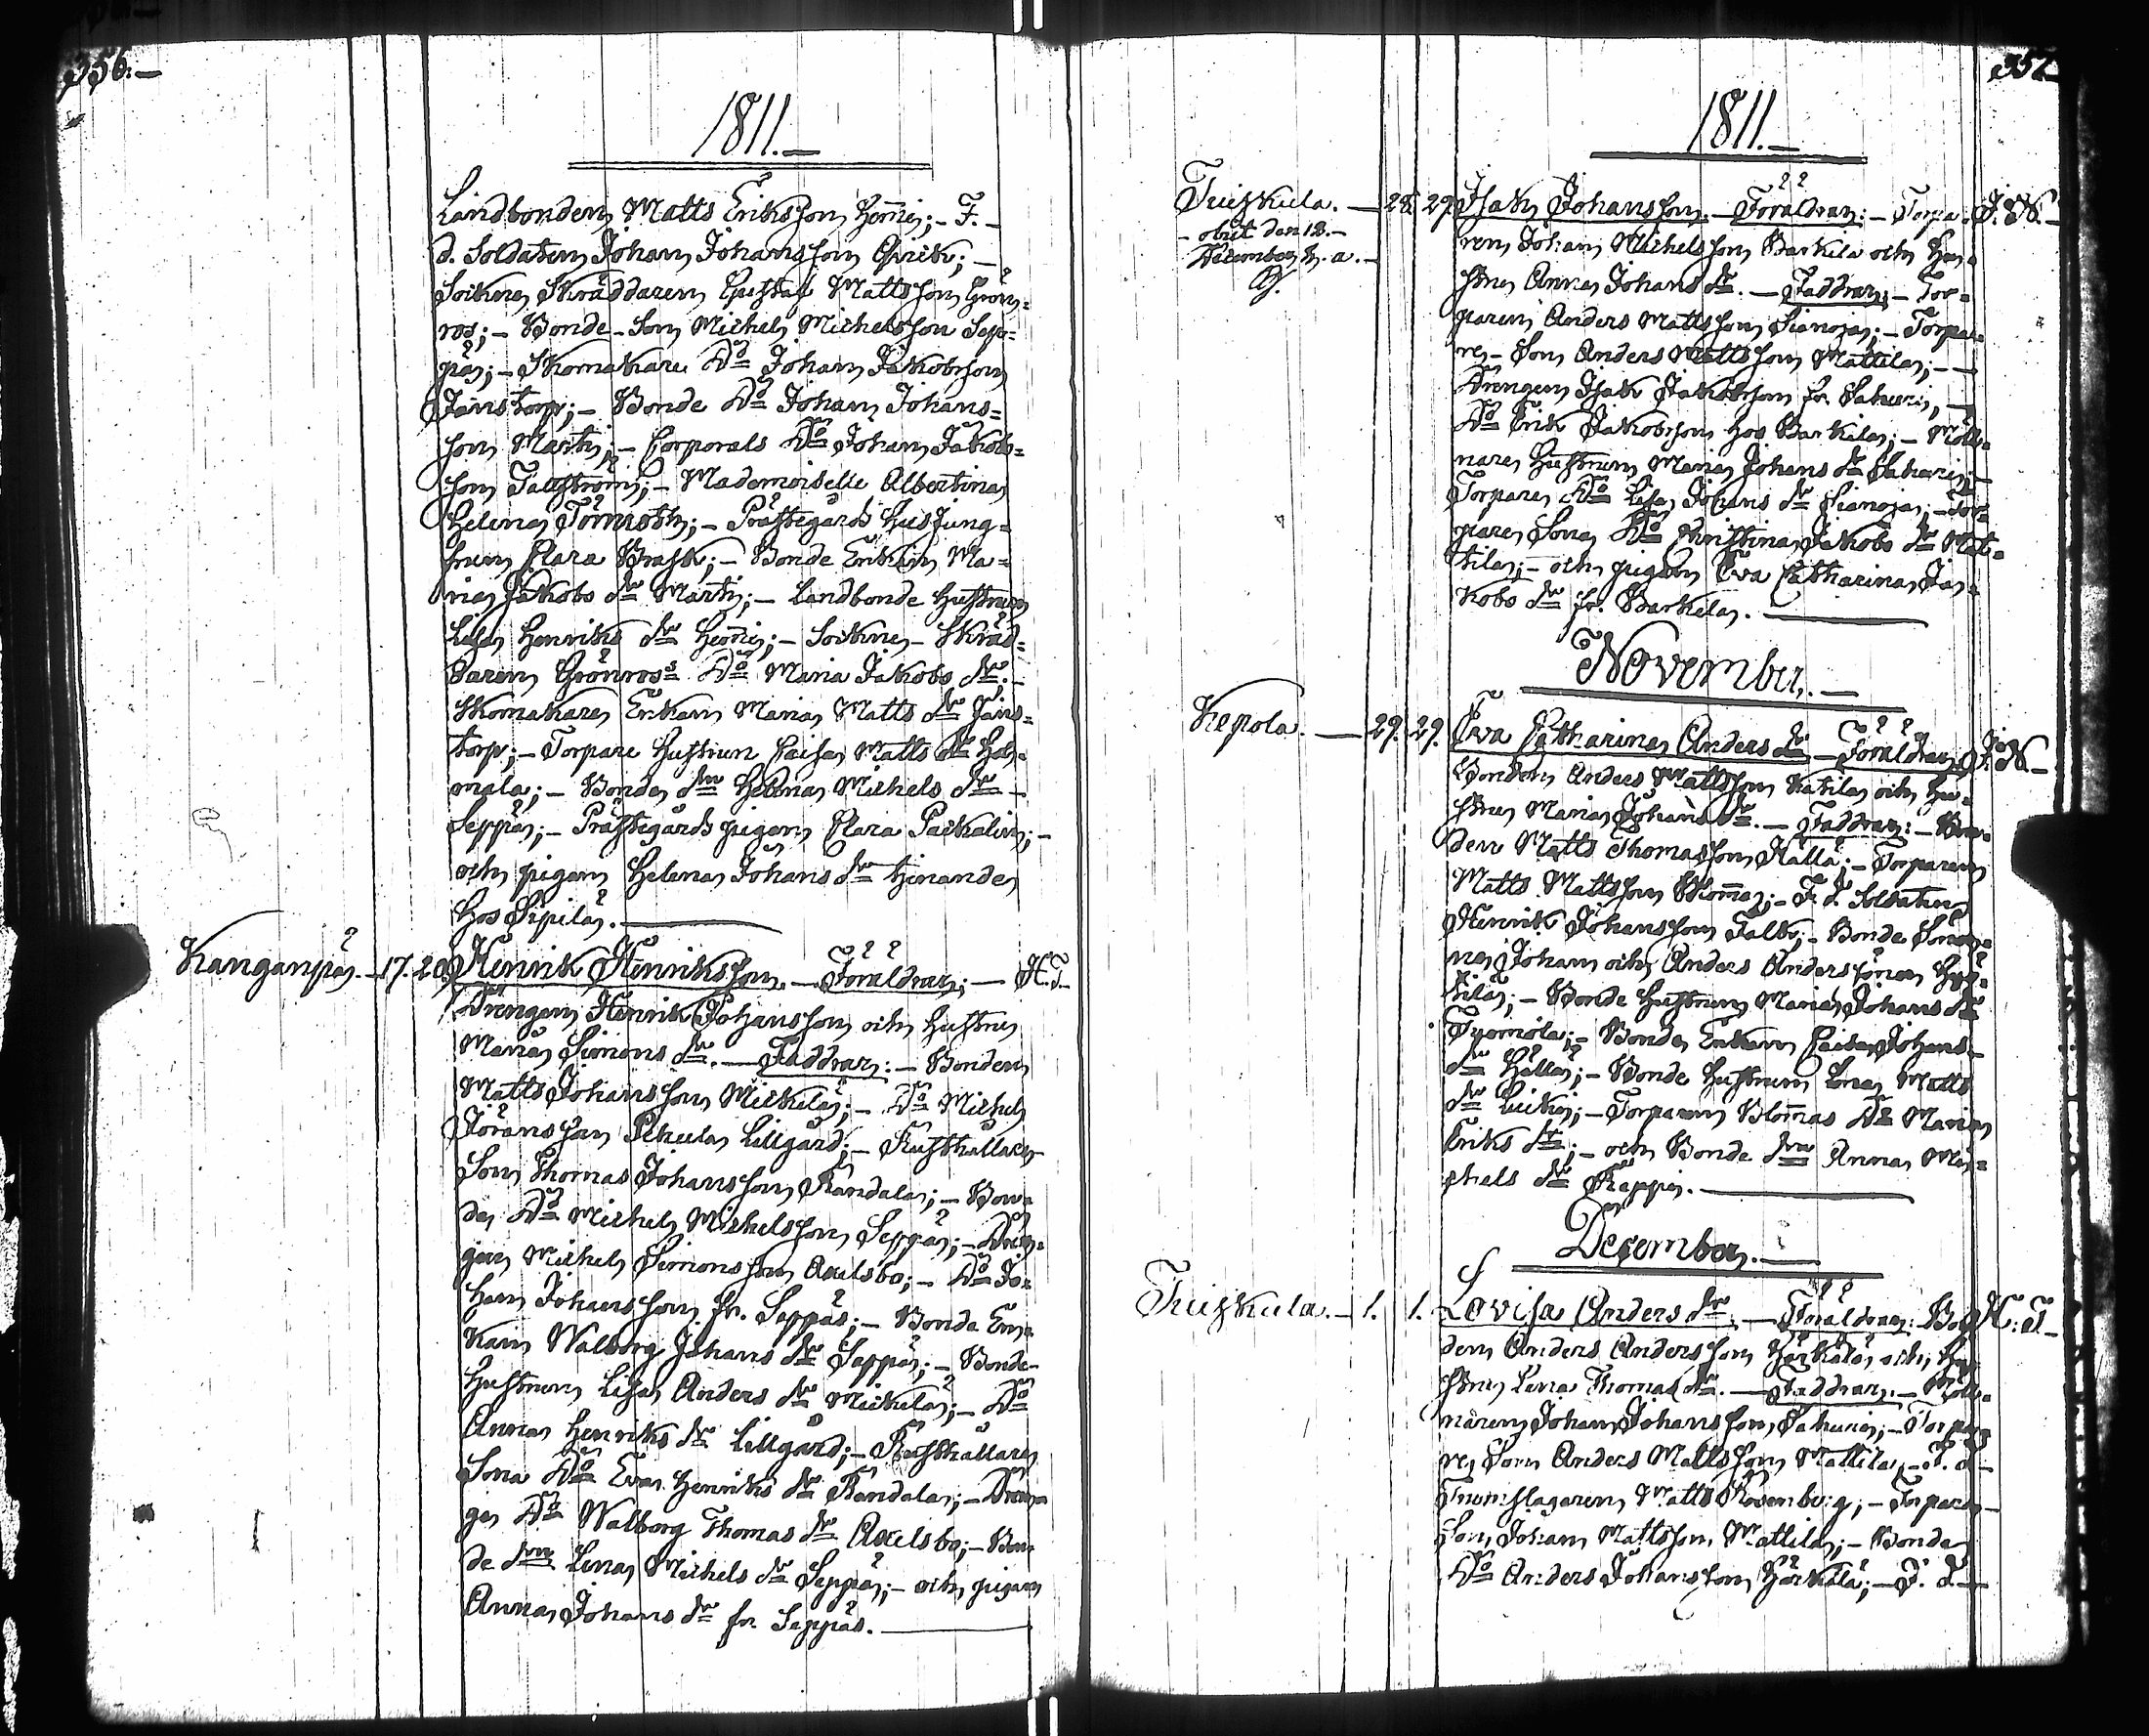 356.
1811.
Landbonden Matts Eriksson Hemi; F.
d. Soldaten Johan Johansson Qvick;
Sockne Skräddaren Gustaf Mattsson Grön=
ros; Bonde Son Michel Michelsson Sep=
pä; Skomakare Do Johan Jakobsson
Jänstorp; Bonde Do Johan Johans=
son Martti; Corporals Do Johan Jakobs=
son; Mademoiselle Albertina
Helena Törnroth; Prästegårds Husjung=
frun Clara Brask; Bonde Enkan Ma=
ria Jakobs dr Martti; Landbonde Hustrun
Lisa Henriks dr Hemi; Sockne Skräd=
daren Grönros Do Maria Jakobs dr.
Skomakare Enkan Maria Matts dr Jäns=
torp; Torpare Hustrun Caisa Matts dr
Bonde dr Helena Michels dr
Seppä; Prästegårds pigan Clara
och pigan Helena Johans dr tienande
hos Sipilä.
Kanganpää. 17. 20. Henrik Henriksson. Föräldrar; H. T.
Drengen Henrik Johansson och Hustru
Maria Simons dr. Faddrar: Bonden
Matts Johansson Mickelä; Do Michel
Göransson Lillgård; Rusthållare
Son Thomas Johansson Randala; Bon=
de Do Michel Michelsson Seppä; Dren=
gen Michel Simonsson Axelsbo; Do Jo=
han Johansson fr. Seppä; Bonde En=
kan Walborg Johans dr Seppä; Bonde
Hustrun Lisa Anders dr Mickelä; Do
Anna Henriks dr Lillgård; Rusthållare
Sona Do Eva Henriks dr Randala; Dren=
ge Do Walborg Thomas dr Axelsbo; Bon=
de dr Lena Michels dr Seppä; och pigan
Anna Johans dr fr. Seppä.
357
1811.
Tuiskula. 28. 29. Isak Johansson. Föräldrar: Torpa= J. N.
obiit den 18.
December h. a.
ren Johan Michelsson Barkila och Hu=
stru Anna Johans dr. Faddrar; Tor=
paren Anders Mattsson Sianoja; Torpa=
re Son Anders Mattsson Mattila;
Drengen Isak Jakobsson fr. Sahuri;
Do Erik Jakobsson hos Barkila; Möll=
nare Hustrun Maria Johans dr Sahuri;
Torpare Do Lisa Johans dr Sianoja; Tor=
pare Sona Do Christina Jakobs dr Mat=
tila; och pigan Eva Catharina Ja=
kobs dr fr. Barkila.
November.
Kepola. 29. 29. Eva Catharina Anders dr Föräldrar J. N.
Bonden Anders Mattsson Katila och Hu=
stru Maria Johans dr. Faddrar: Bon=
den Matts Thomasson Källä; Torparen
Matts Mattsson Blomma; F. d. Soldaten
Henrik Johansson Falk; Bonde Söner=
ne Johan och Anders Anderssöner
Bonde Hustrun Maria Johans dr
Bonde Enkan Caisa Johans
dr Källä; Bonde Hustrun Lena Matts
dr Torparen Blommas Do Maria
Eriks dr; och Bonde dr Anna Mi=
chels dr Reppi.
December.
Tuiskula. 1. 1. Lovisa Anders dr. Föräldrar: Bon= H. T.
den Anders Andersson Härkälä och Hu=
stru Lena Thomas dr. Faddrar: Möll=
naren Johan Johansson Sahuri; Torpa=
re Son Anders Mattsson Mattila; F. d.
Trumslagaren Matts Rosenberg; Torpare
Son Johan Mattsson Mattila; Bonde
Do Anders Johansson Härkälä; F. d.